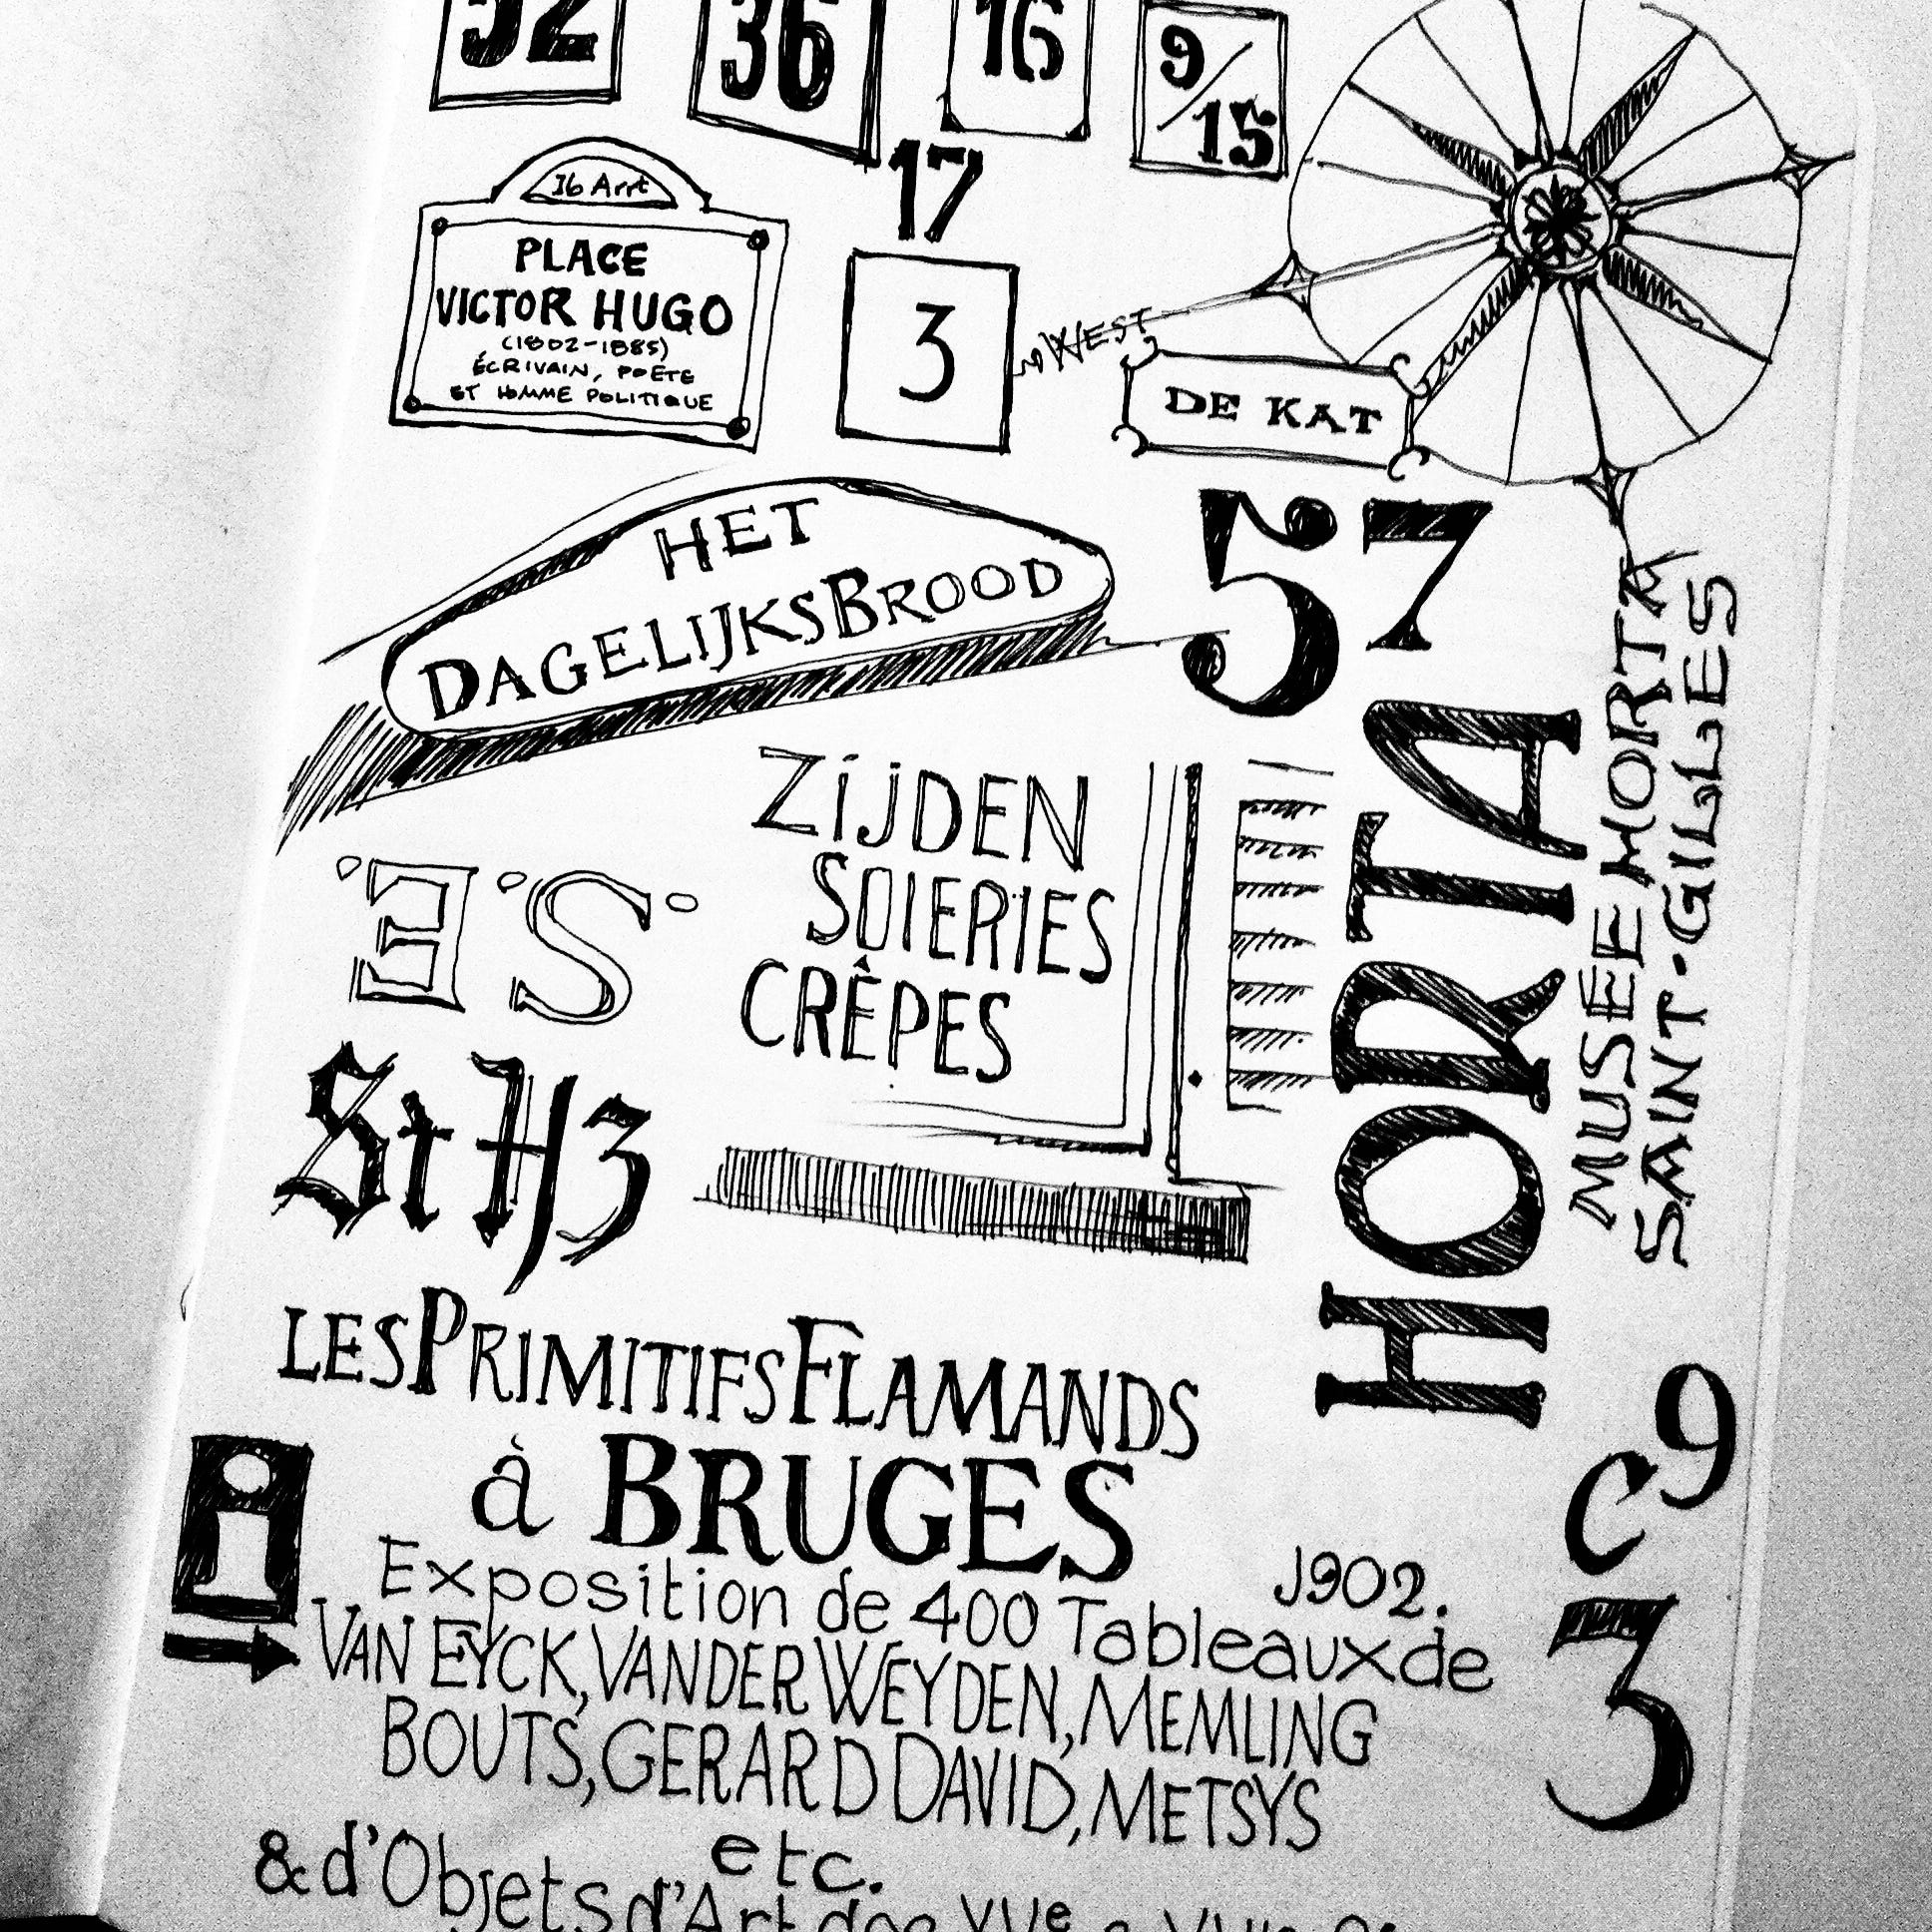 52 36 16 9/15
17
16 Arrt
PLACE
VICTOR HUGO
(1802-1885)
ÉCRIVAIN, POÈTE
ET HOMME POLITIQUE
3
WEST
DE KAT
HET
DAGELIJKSBROOD
57
ZIJDEN
SOIERIES
CRÊPES
E S
St H3
HORTA
MUSEE HORTA
SAINT·GILLES
LES PRIMITIFS FLAMANDS
à BRUGES
i
9
c
3
1902.
Exposition de 400 Tableaux de
VAN EYCK, VANDER WEYDEN, MEMLING
BOUTS, GERARD DAVID, METSYS
etc.
& d'Objets d'Art des